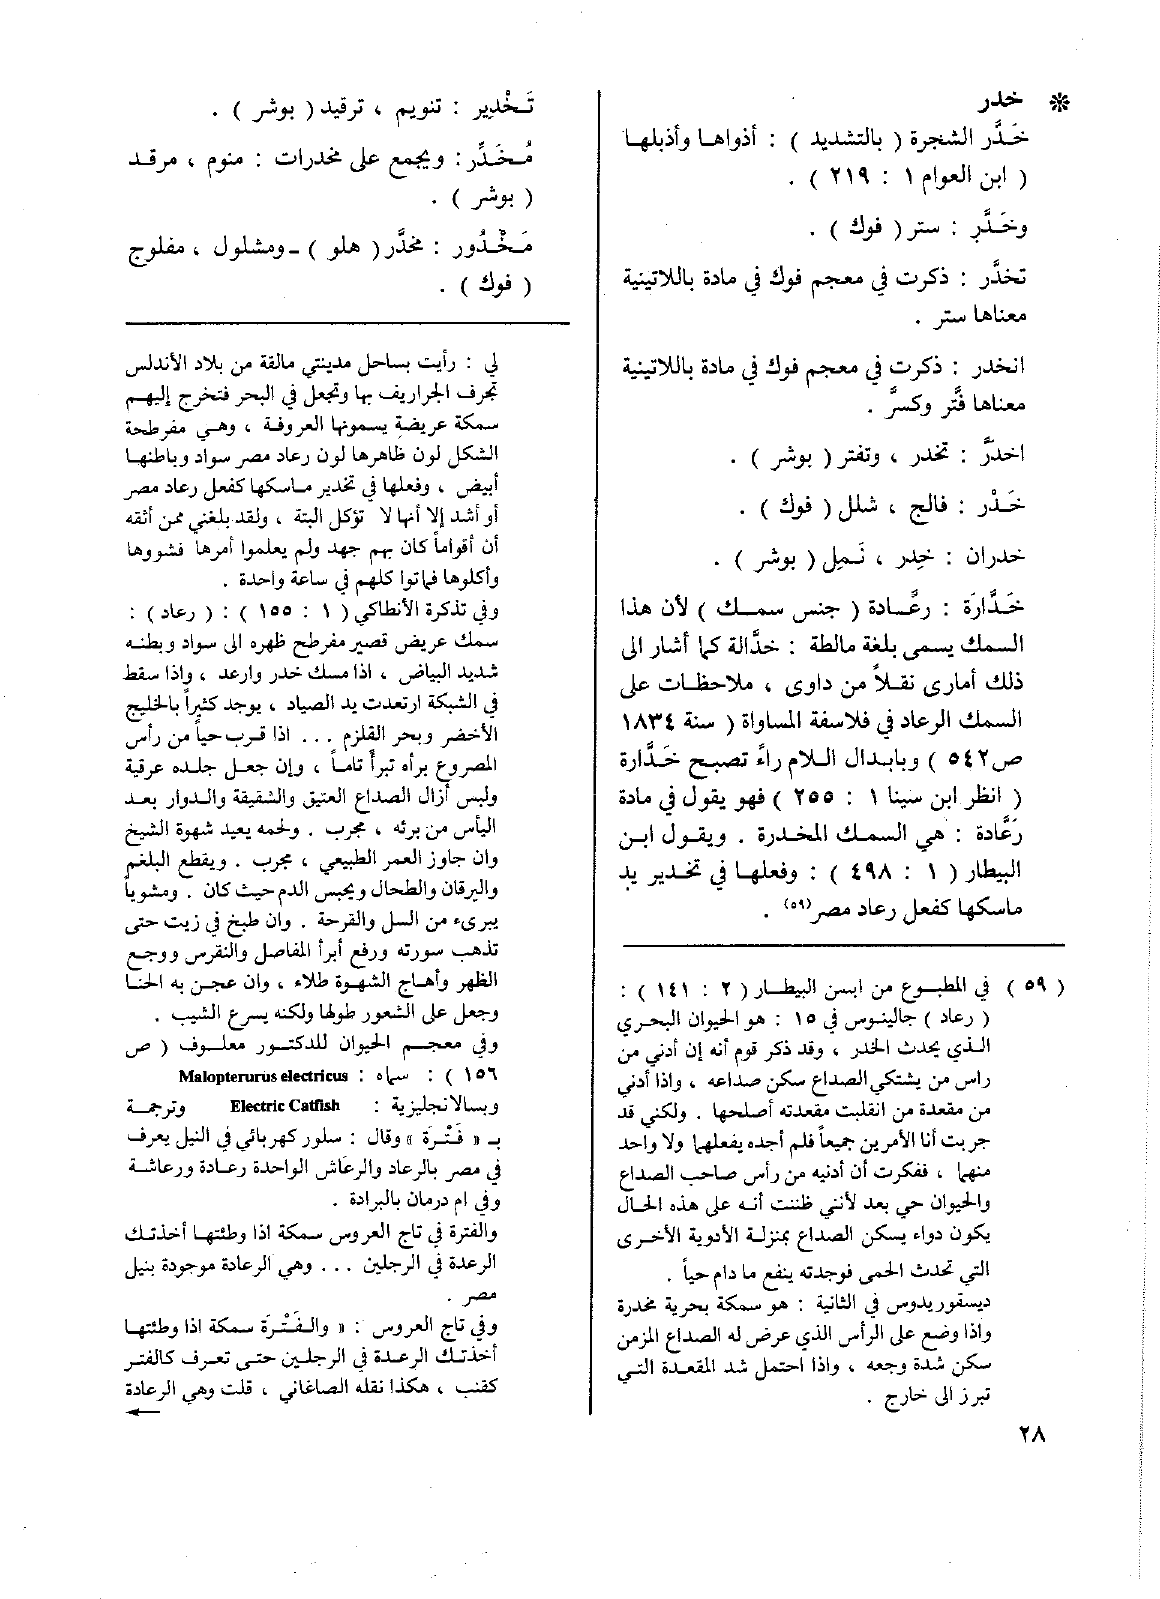 * خدر
خَدَّر الشجرة ( بالتشديد ) : أذواها وأذبلها
( ابن العوام ١ : ٢١٩ ) .
وخَدَّر : ستر ( فوك ) .
تخدَّر : ذكرت في معجم فوك في مادة باللاتينية
معناها ستر .
انخدر : ذكرت في معجم فوك في مادة باللاتينية
معناها فَتَّر وكسرَّ .
اخدرَّ : تخدر ، وتفتر ( بوشر ) .
خَدْر : فالج ، شلل ( فوك ) .
خدران : خدِر ، نَمِل ( بوشر ) .
خَدَّارَة : رعَّادة ( جنس سمك ) لأن هذا
السمك يسمى بلغة مالطة : خدَّالة كما أشار الى
ذلك أمارى نقلاً من داوى ، ملاحظات على
السمك الرعاد في فلاسفة المساواة ( سنة ١٨٣٤
ص٥٤٢ ) وبابدال اللام راءً تصبح خَدَّارة
( انظر ابن سينا ١ : ٢٥٥ ) فهو يقول في مادة
رَعَّادة : هي السمك المخدرة . ويقول ابن
البيطار ( ١ : ٤٩٨ ) : وفعلها في تخدير يد
ماسكها كفعل رعاد مصر(٥٩) .
( ٥٩ ) في المطبوع من ابسن البيطار ( ٢ : ١٤١ ) :
( رعاد ) جالينوس في ١٥ : هو الحيوان البحري
الذي يحدث الخدر ، وقد ذكر قوم أنه إن أدني من
راس من يشتكي الصداع سكن صداعه ، واذا أدني
من مقعدة من انقلبت مقعدته أصلحها . ولكني قد
جربت أنا الأمرين جميعاً فلم أجده يفعلهما ولا واحد
منهما ، ففكرت أن أدنيه من رأس صاحب الصداع
والحيوان حي بعد لأنني ظننت أنه على هذه الحال
يكون دواء يسكن الصداع بمنزلة الأدوية الأخرى
التي تحدث الحمى فوجدته ينفع ما دام حياً .
ديسقوريدوس في الثانية : هو سمكة بحرية مخدرة
واذا وضع على الرأس الذي عرض له الصداع المزمن
سكن شدة وجعه ، واذا احتمل شد المقعدة التي
تبرز الى خارج .
تَخْدِير : تنويم ، ترقيد ( بوشر ) .
مُخَدِّر : ويجمع على مخدرات : منوم ، مرقد
( بوشر ) .
مَخْدُور : مخدَّر ( هلو ) - ومشلول ، مفلوج
( فوك ) .
لي : رأيت بساحل مدينتي مالقة من بلاد الأندلس
تجرف الجراريف بها وتجعل في البحر فتخرج إليهم
سمكة عريضة يسمونها العروفة ، وهي مفرطحة
الشكل لون ظاهرها لون رعاد مصر سواد وباطنها
أبيض ، وفعلها في تخدير ماسكها كفعل رعاد مصر
أو أشد إلا أنها لا تؤكل البتة ، ولقد بلغني ممن أثقه
أن أقواماً كان بهم جهد ولم يعلموا أمرها فشووها
وأكلوها فماتوا كلهم في ساعة واحدة .
وفي تذكرة الأنطاكي ( ١ : ١٥٥ ) : ( رعاد ) :
سمك عريض قصير مفرطح ظهره الى سواد وبطنه
شديد البياض ، اذا مسك خدر وارعد ، واذا سقط
في الشبكة ارتعدت يد الصياد ، يوجد كثيراً بالخليج
الأخضر وبحر القلزم ... اذا قرب حياً من رأس
المصروع برأه تبرأ تاماً ، وإن جعل جلده عرقية
وليس أزال الصداع العتيق والشقيقة والدوار بعد
اليأس من برئه ، مجرب . ولحمه يعيد شهوة الشيخ
وان جاوز العمر الطبيعي ، مجرب . ويقطع البلغم
واليرقان والطحال ويحبس الدم حيث كان . ومشوياً
يبرىء من السل والقرحة . وان طبخ في زيت حتى
تذهب سورته ورفع أبرأ المفاصل والنقرس ووجع
الظهر وأهاج الشهوة طلاء ، وان عجن به الحنا
وجعل على الشعور طولها ولكنه يسرع الشيب .
وفي معجم الحيوان للدكتور معلوف ( ص
١٥٦ ) : سماه : Malopterurus electricus
وبسالانجليزية : Electric Catfish وترجمة
بـ « فَتْرَة » وقال : سلور كهربائي في النيل يعرف
في مصر بالرعاد والرعاش الواحدة رعادة ورعاشة
وفي ام درمان بالبرادة .
والفترة في تاج العروس سمكة اذا وطئتها أخذتك
الرعدة في الرجلين ... وهي الرعادة موجودة بنيل
مصر .
وفي تاج العروس : « والفَتْرَة سمكة اذا وطئتها
أخذتك الرعدة في الرجلين حتى تعرف كالفتر
كقنب ، هكذا نقله الصاغاني ، قلت وهي الرعادة
٢٨